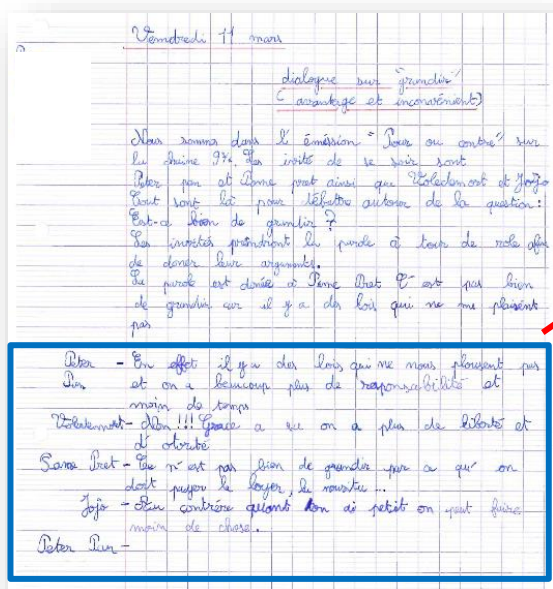 Vendredi 11 mars
dialogue sur "grandir"
( avantage et inconvénient)
Nous sommes dans l'émission "Pour ou contre" sur
la chaine 94. Les invité de se soir sont
Peter pan et Pome pret ainsi que Voledemort et Jojo
Tout sont là pour débattre autour de la question :
Est-ce bien de grandir ?
Les invités prendront la parole à tour de role afin
de doner leur arguments.
La parole est donée à Pome Pret C'est pas bien
de grandir car il y a des lois qui ne me plaisent
pas
Peter - En effet il y a des lois qui ne nous plaisent pas
Pan et on a beaucoup plus de responsabilité et
moin de temps
Voledemort - Non !!! Grace a sa on a plus de liberté et
d'
Pome Pret - Ce n'est pas bien de grandir par a qu'on
doit payer le loyer, la
Jojo - Au contrère quant on ai petit on peut faire
moin de chose.
Peter Pan -